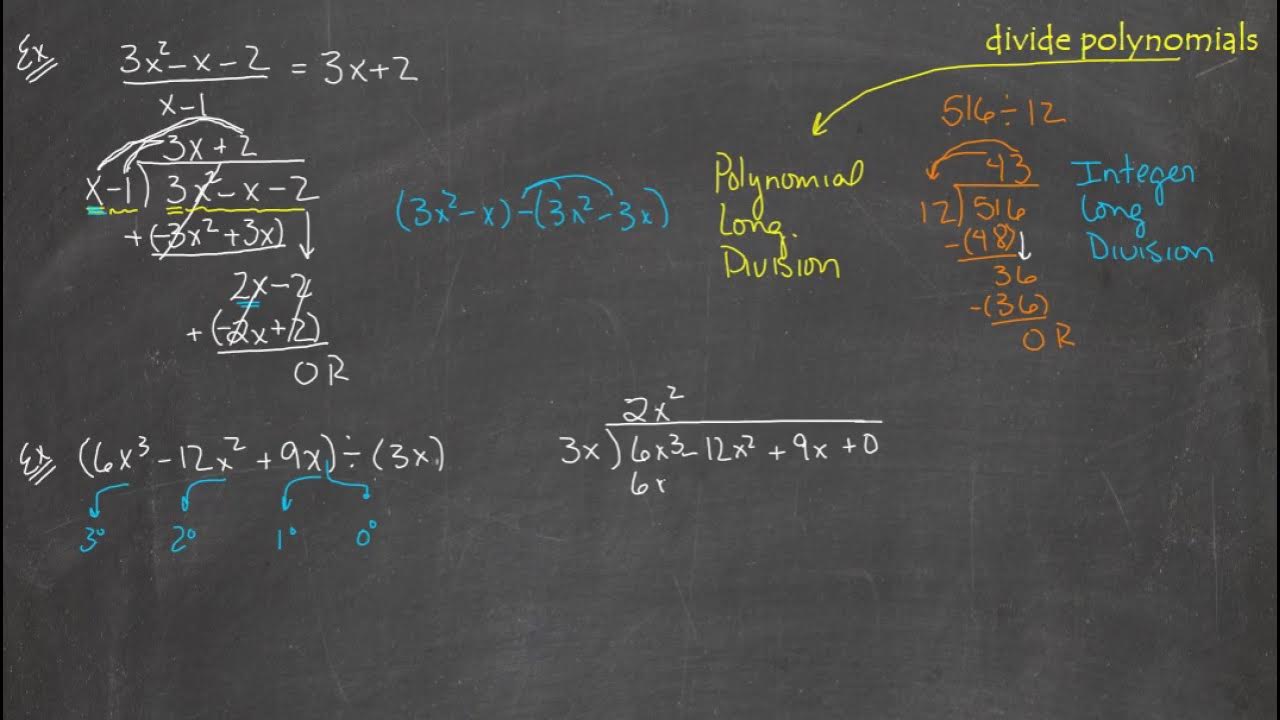 divide polynomials
Ex
3x² - x - 2
= 3x + 2
x - 1
3x + 2
x - 1 ) 3x² - x - 2
+ (-3x² + 3x)
2x - 2
+ (-2x + 2)
0 R
(3x² - x) - (3x² - 3x)
Polynomial
Long
Division
516 ÷ 12
43
12 ) 516
- (48)
36
- (36)
0 R
Integer
Long
Division
Ex (6x³ - 12x² + 9x) ÷ (3x)
3° 2° 1° 0°
2x²
3x ) 6x³ - 12x² + 9x + 0
6x